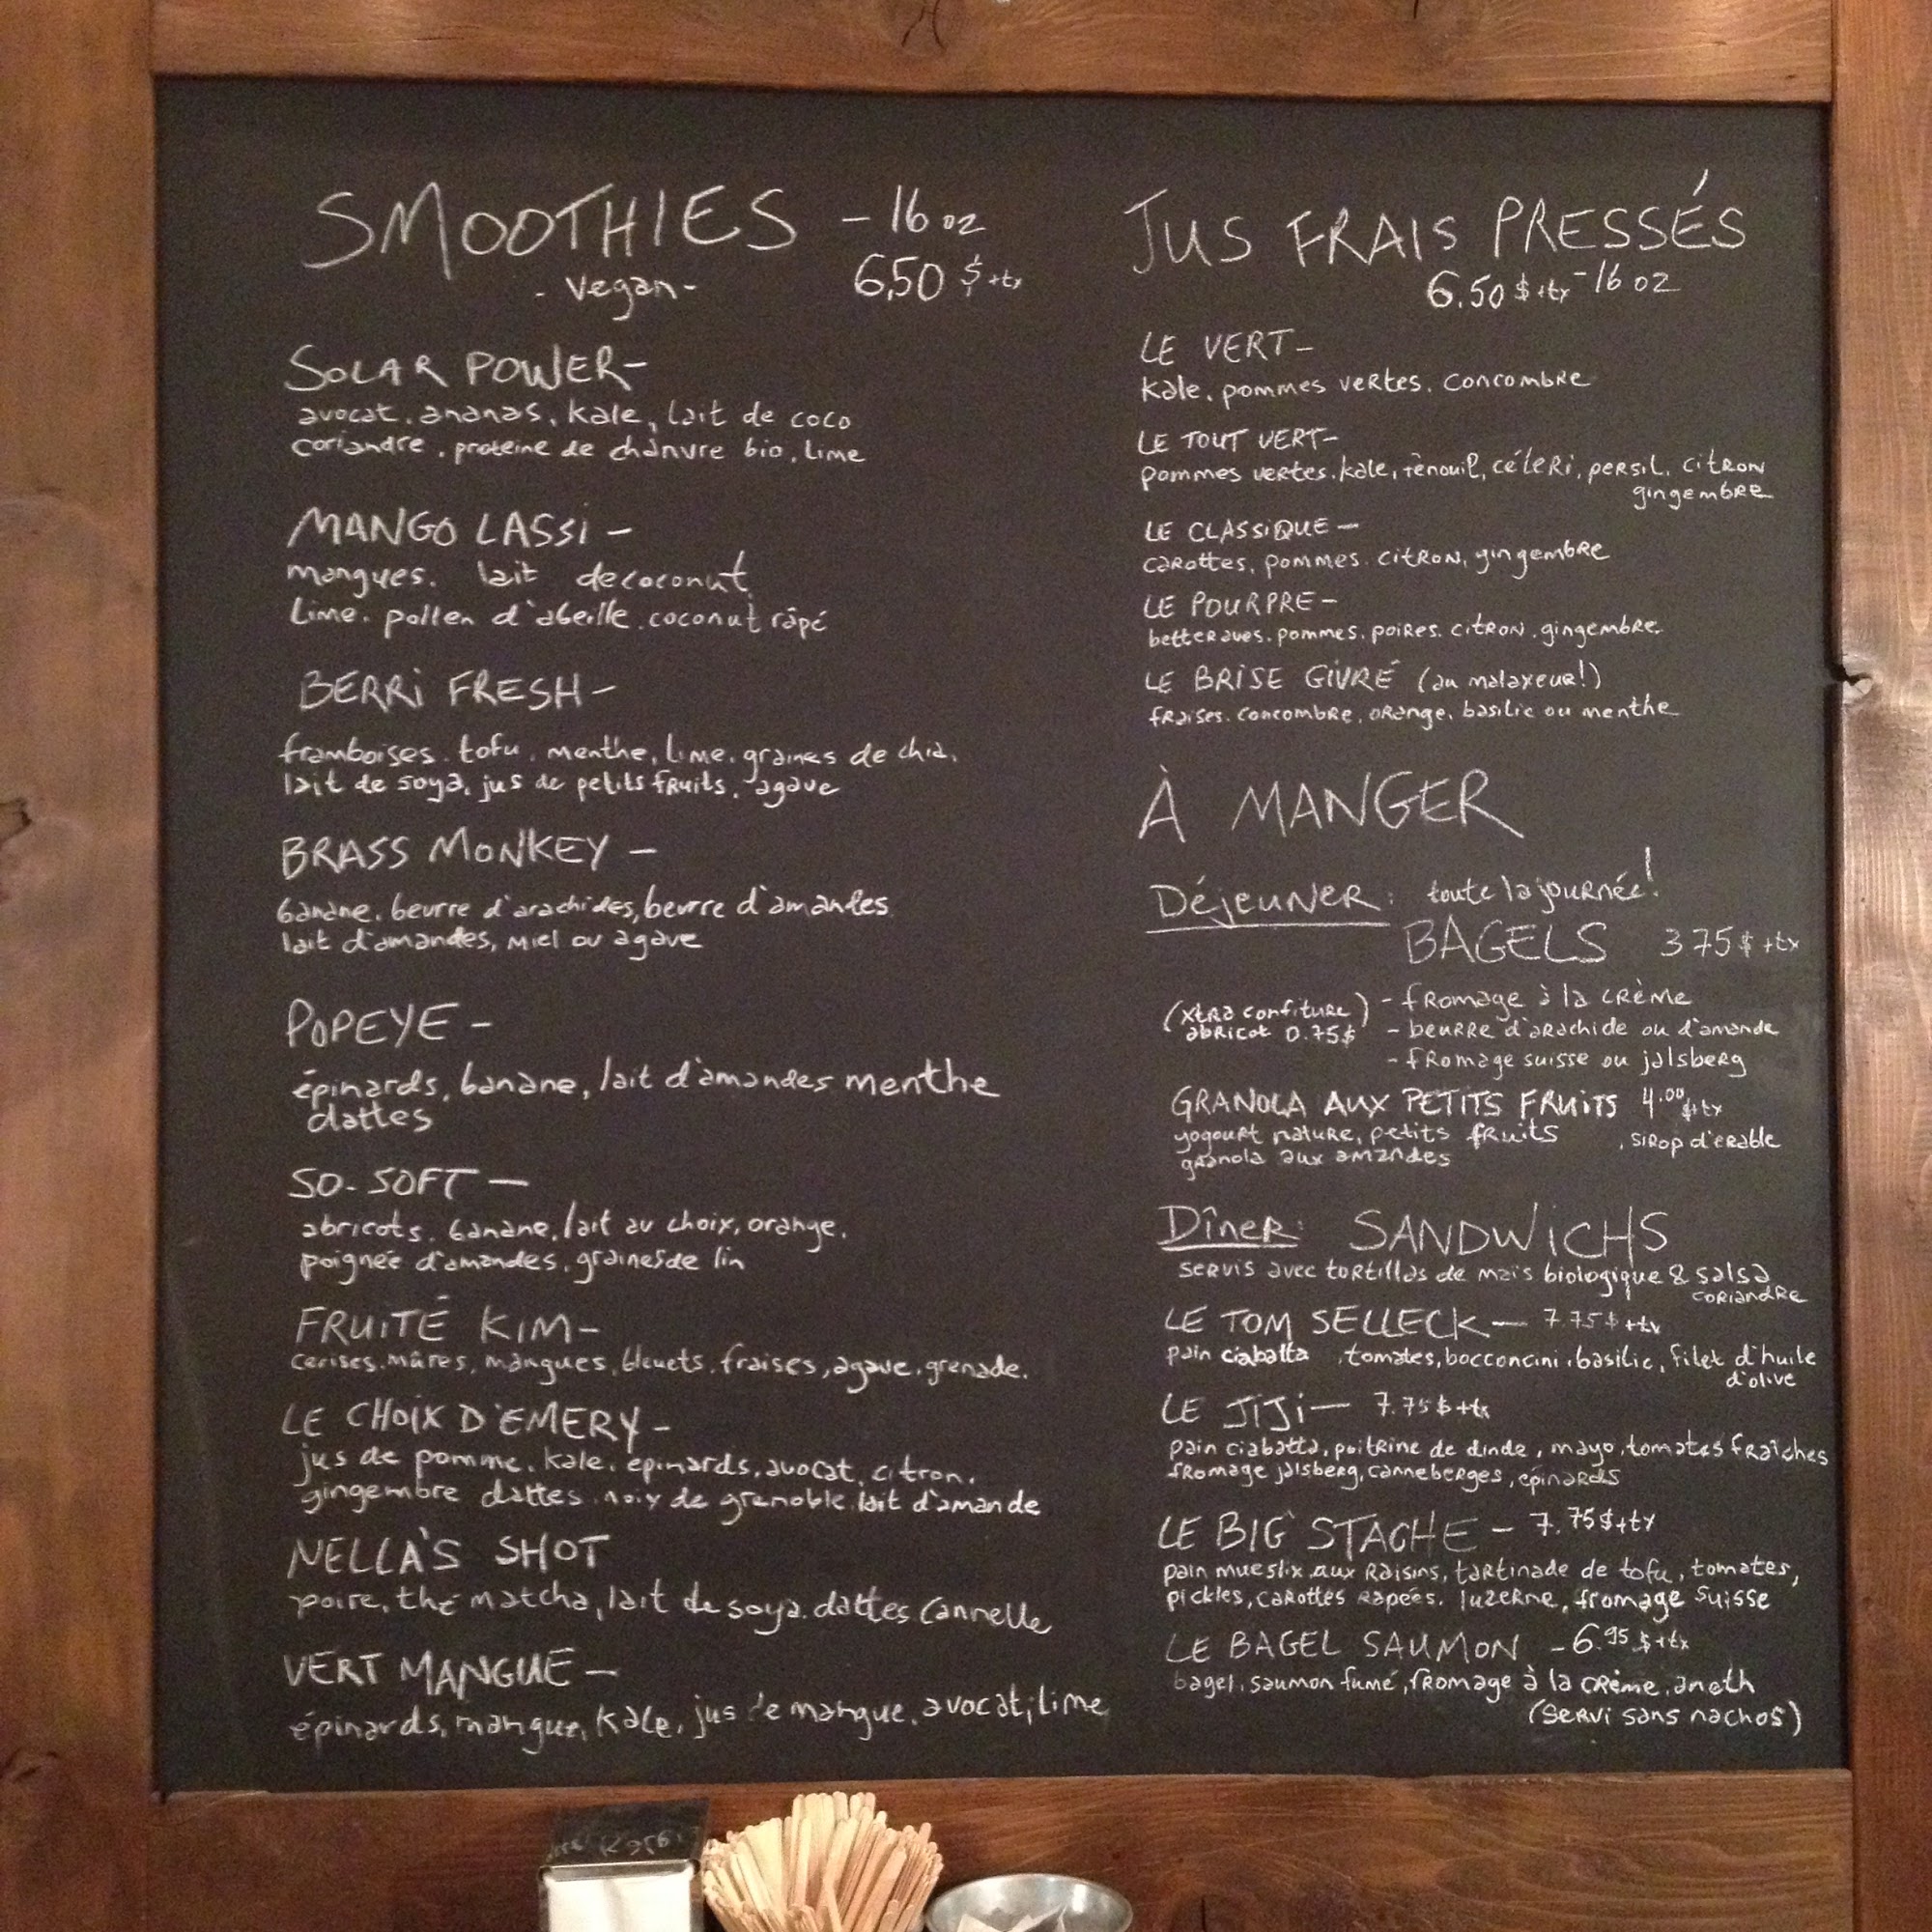 SMOOTHIES - 16 oz
- vegan - 6,50 $ +tx
SOLAR POWER-
avocat. ananas, kale, lait de coco
coriandre, proteine de chanvre bio, lime
MANGO LASSi -
mangues. lait de coconut
lime. pollen d'abeille. coconut râpé
BERRi FRESH -
framboises. tofu. menthe, lime. graines de chia,
lait de soya, jus de petits fruits, agave
BRASS MONKEY -
banane. beurre d'arachides, beurre d'amandes
lait d'amandes, miel ou agave
POPEYE -
épinards, banane, lait d'amandes menthe
dattes
SO-SOFT -
abricots. banane, lait au choix, orange.
poignée d'amandes. graines de lin
FRUiTÉ KiM-
cerises. mûres, mangues, bleuets. fraises, agave. grenade.
LE CHOIX D'EMERY -
jus de pomme. kale. épinards, avocat, citron.
gingembre dattes. noix de grenoble. lait d'amande
NELLA'S SHOT
poire, thé matcha, lait de soya. dattes Cannelle
VERT MANGUE -
épinards, mangue, kale, jus de mangue, avocat, lime
JUS FRAIS PRESSÉS
6.50 $ +tx - 16 oz
LE VERT -
Kale. pommes vertes. concombre
LE TOUT VERT-
pommes vertes. kale, fenouil, céleri, persil. citron
gingembre
LE CLASSiQUE -
carottes, pommes. citron, gingembre
LE POURPRE -
betteraves. pommes. poires. citron. gingembre.
LE BRISE GiVRÉ (au malaxeur!)
fraises. concombre. orange. basilic ou menthe
À MANGER
Déjeuner: toute la journée!
BAGELS 3 75 $ +tx
(xtra confiture) - fromage à la crème
abricot 0.75$ - beurre d'arachide ou d'amande
- fromage suisse ou jalsberg
GRANOLA AUX PETITS FRUiTS 4.00 $+tx
yogourt nature, petits fruits, sirop d'erable
granola aux amandes
Dîner: SANDWiCHS
servis avec tortillas de maïs biologique & salsa
coriandre
LE TOM SELLECK - 7.75 $ +tx
pain ciabatta, tomates, bocconcini, basilic, filet d'huile
d'olive
LE JiJi - 7.75 $ +tx
pain ciabatta, poitrine de dinde, mayo, tomates fraîches
fromage jalsberg, canneberges, épinards
LE BIG STACHE - 7.75 $+tx
pain mueslix aux raisins, tartinade de tofu, tomates,
pickles, carottes rapées. luzerne, fromage suisse
LE BAGEL SAUMON - 6.95 $+tx
bagel. saumon fumé, fromage à la crème. aneth
(servi sans nachos)